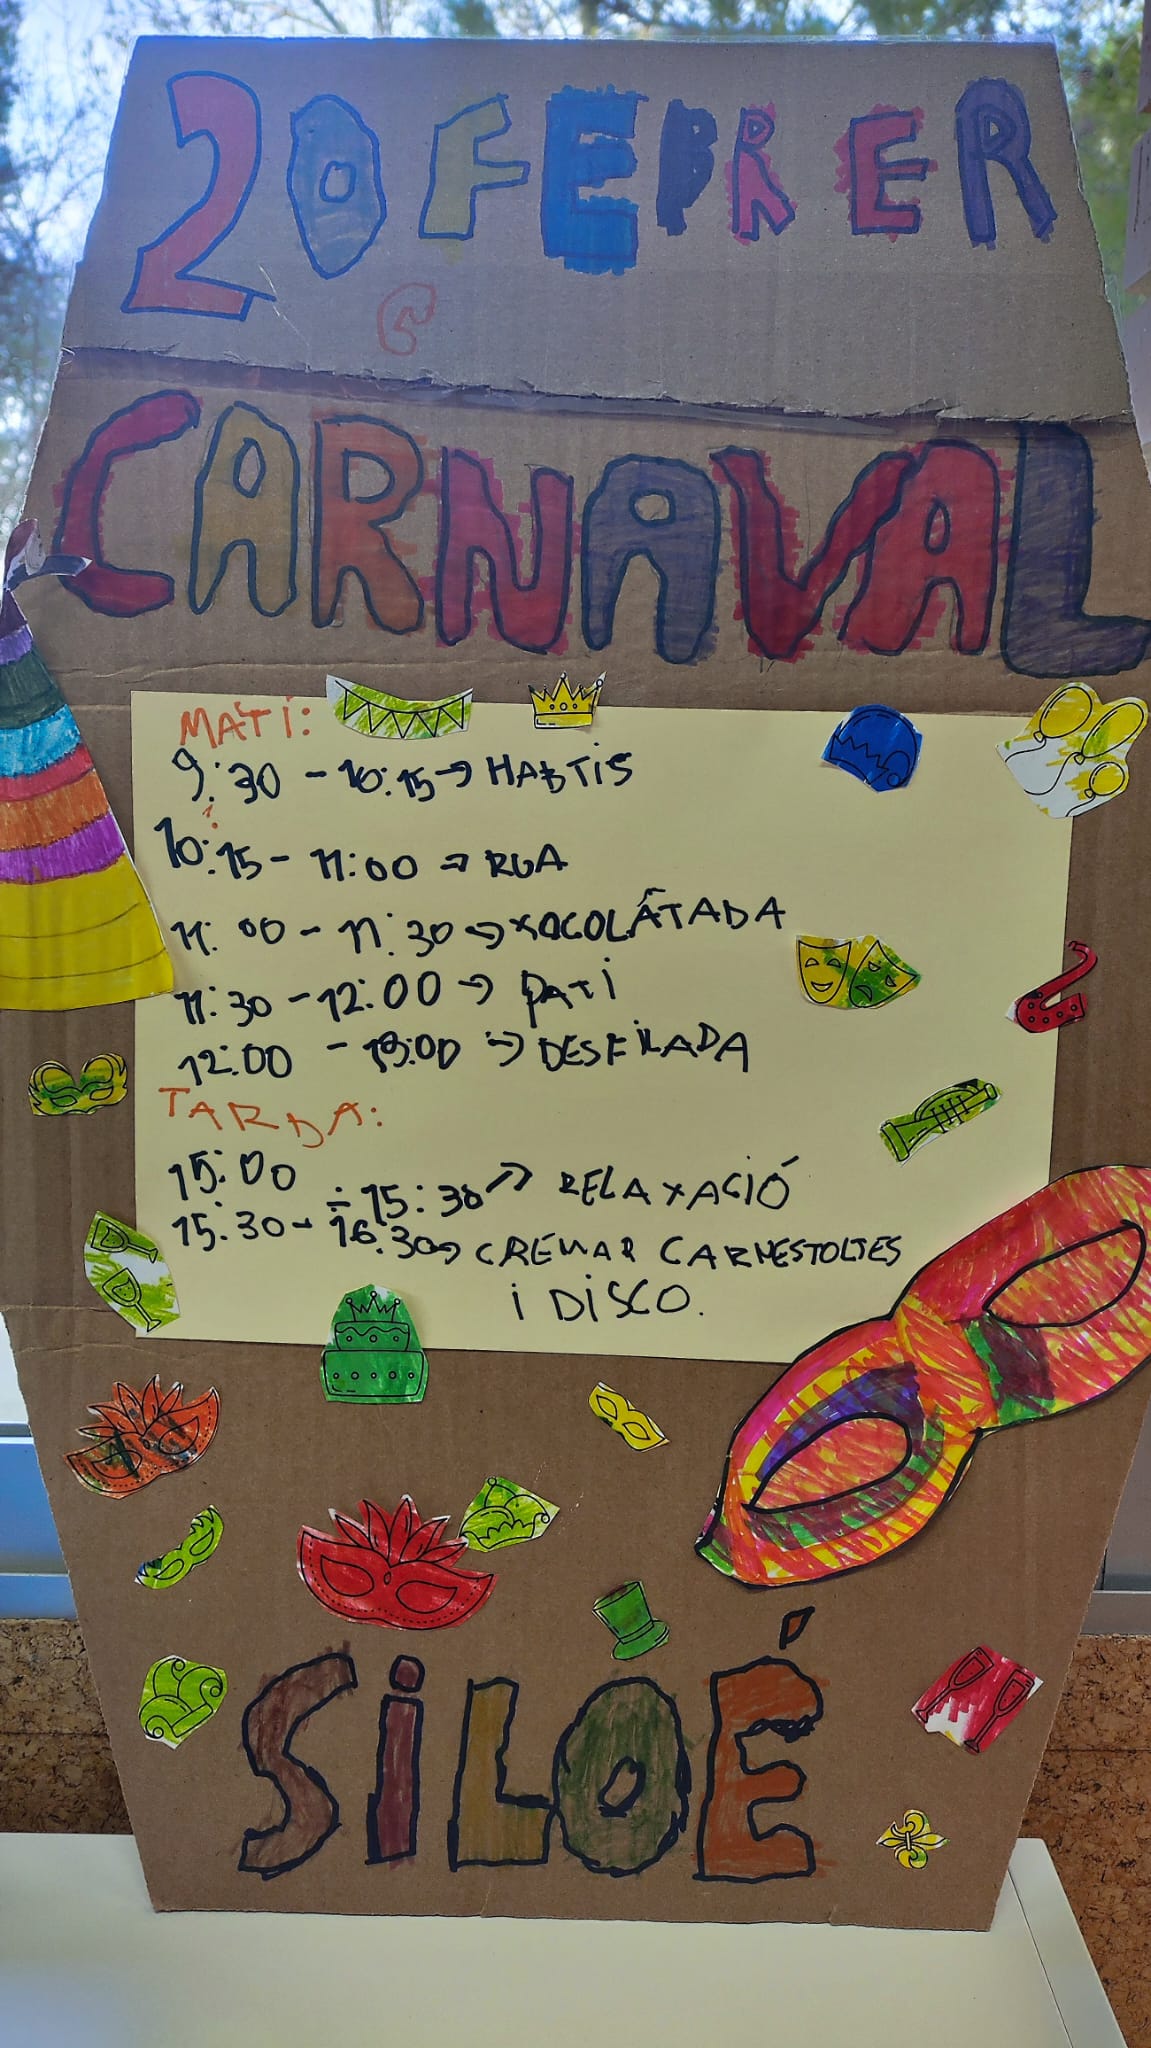 20 FEBRER
CARNAVAL
MATÍ:
9:30 - 10:15 → HABTIS
10:15 - 11:00 → RUA
11:00 - 11:30 → XOCOLATADA
11:30 - 12:00 → PATI
12:00 - 13:00 → DESFILADA
TARDA:
15:00 - 15:30 → RELAXACIÓ
15:30 - 16:30 → CREMAR CARNESTOLTES
I DISCO.
SILOÉ